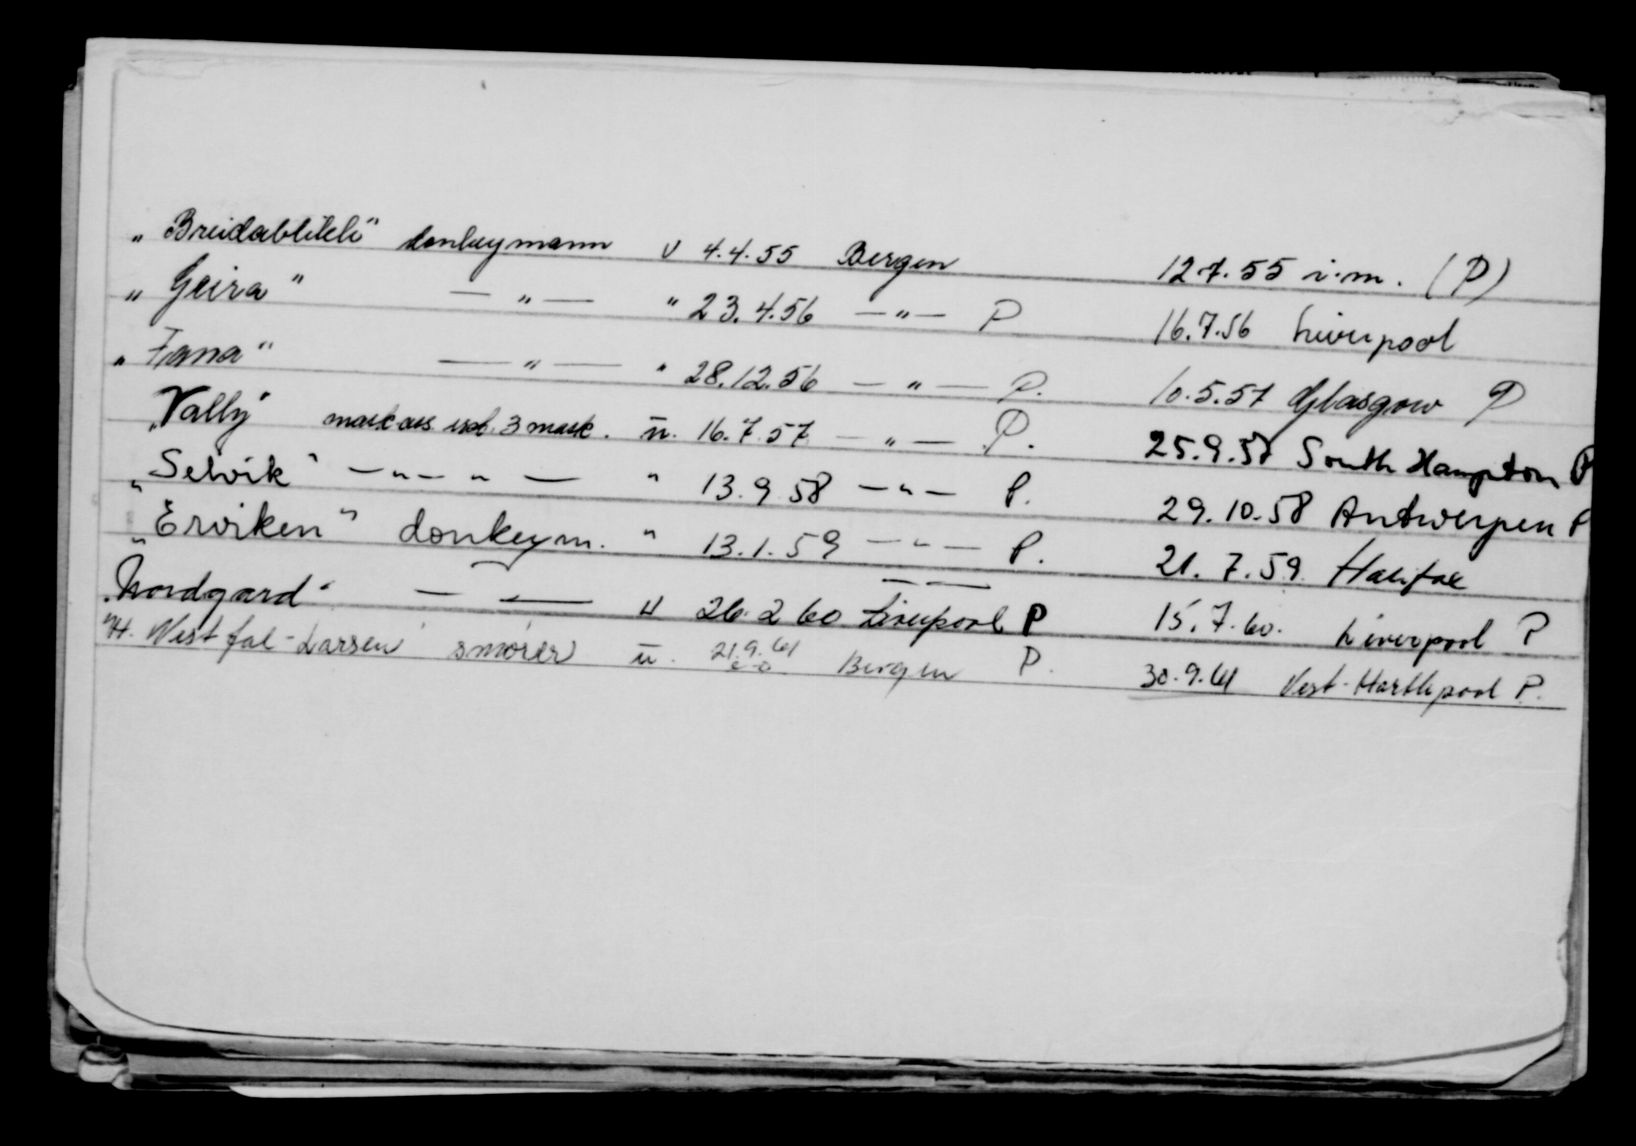 „Breidablikk" donkeymann v 4.4.55 Bergen 12.7.55 i.m. (P)
„Geira" — „ — " 23.4.56 — „ — P 16.7.56 Liverpool
„Fana" — „ — " 28.12.56 — „ — P. 10.5.57 Glasgow P
„Vally" mask.ass 3 mask. u. 16.7.57 — „ — P. 25.9.57 South Hampton P
„Selvik" — „ — „ — " 13.9.58 — „ — P. 29.10.58 Antwerpen P
„Erviken" donkeym. " 13.1.59 — „ — P. 21.7.59 Halifax
„Nordgard" — — u 26.2.60 Liverpool P 15.7.60. Liverpool P
"H. Westfal-Larsen" smører u. 21.9.61 Bergen P. 30.9.61 Vest-Hartlepool P.